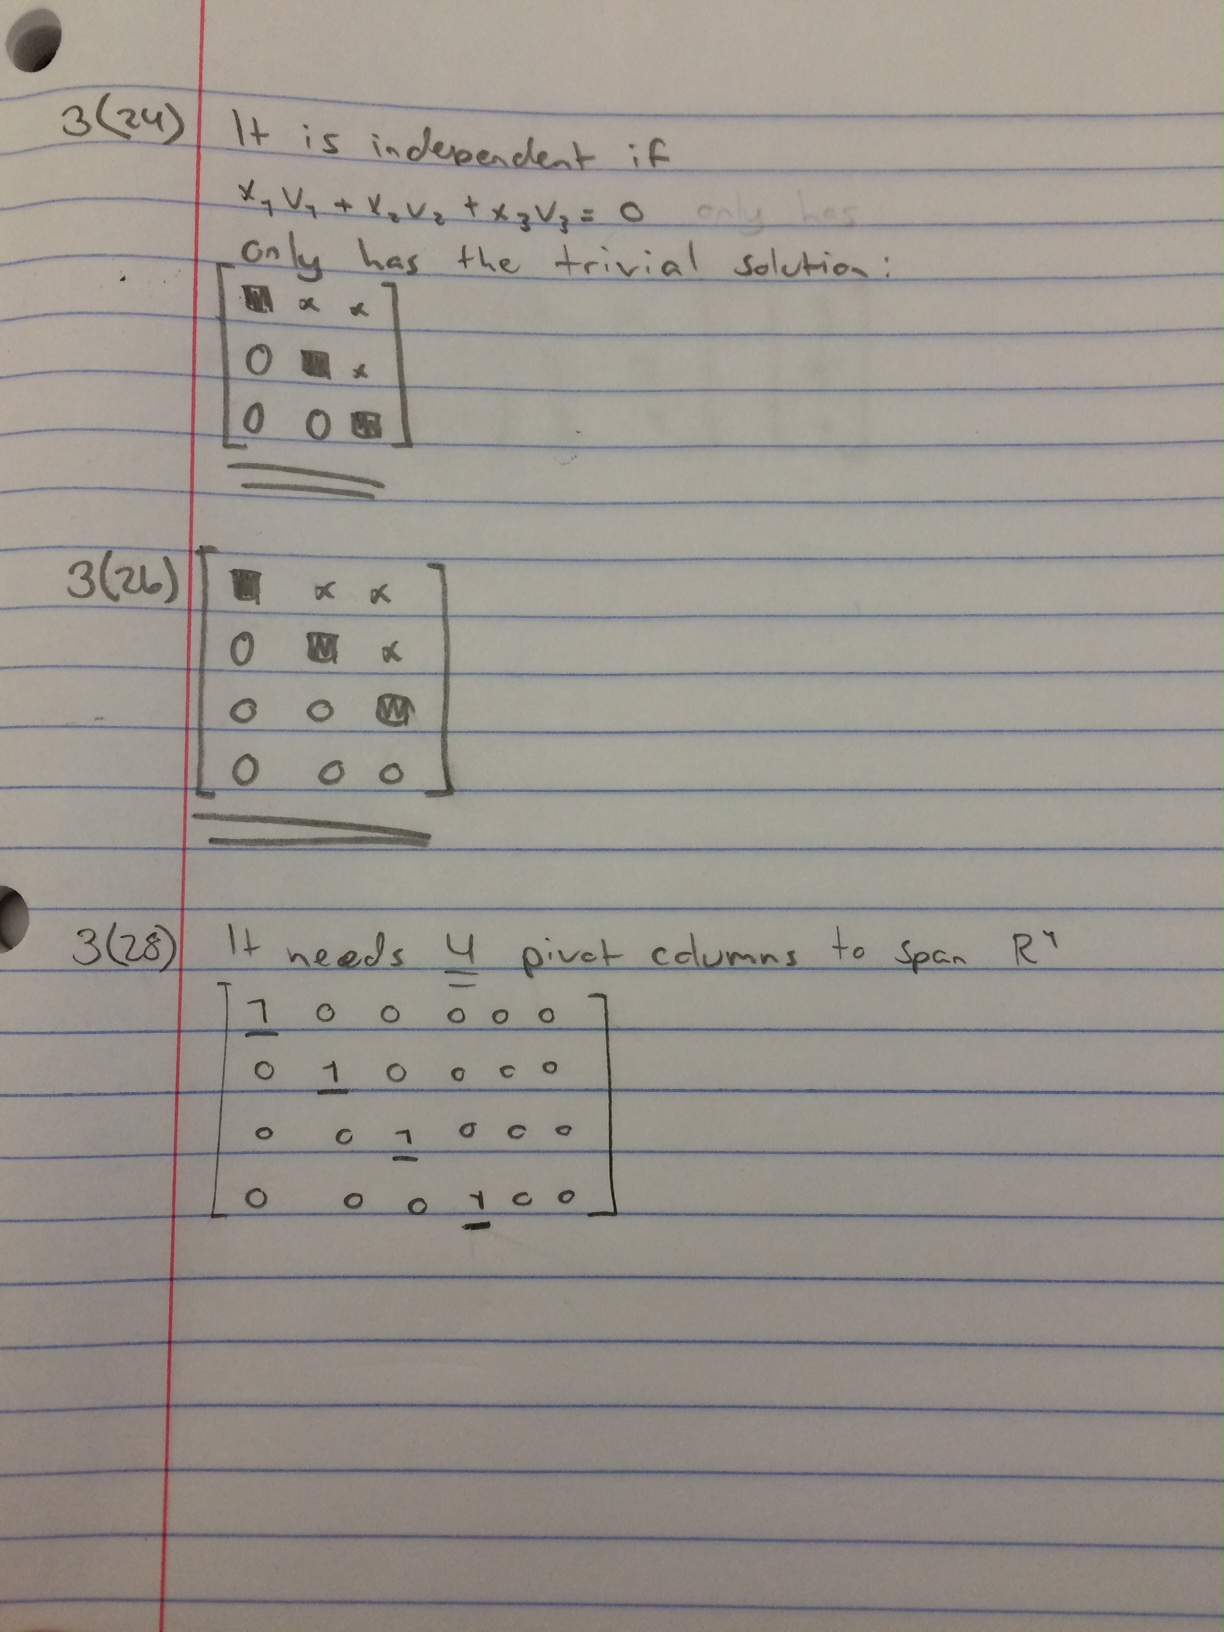 3(24) It is independent if
x₁v₁ + x₂v₂ + x₃v₃ = 0 only has
only has the trivial solution:
[■ x x]
[0 ■ x]
[0 0 ■]
3(26) [■ x x]
[0 ■ x]
[0 0 ■]
[0 0 0]
3(28) It needs 4 pivot columns to span R⁴
[1 0 0 0 0 0]
[0 1 0 0 0 0]
[0 0 1 0 0 0]
[0 0 0 1 0 0]